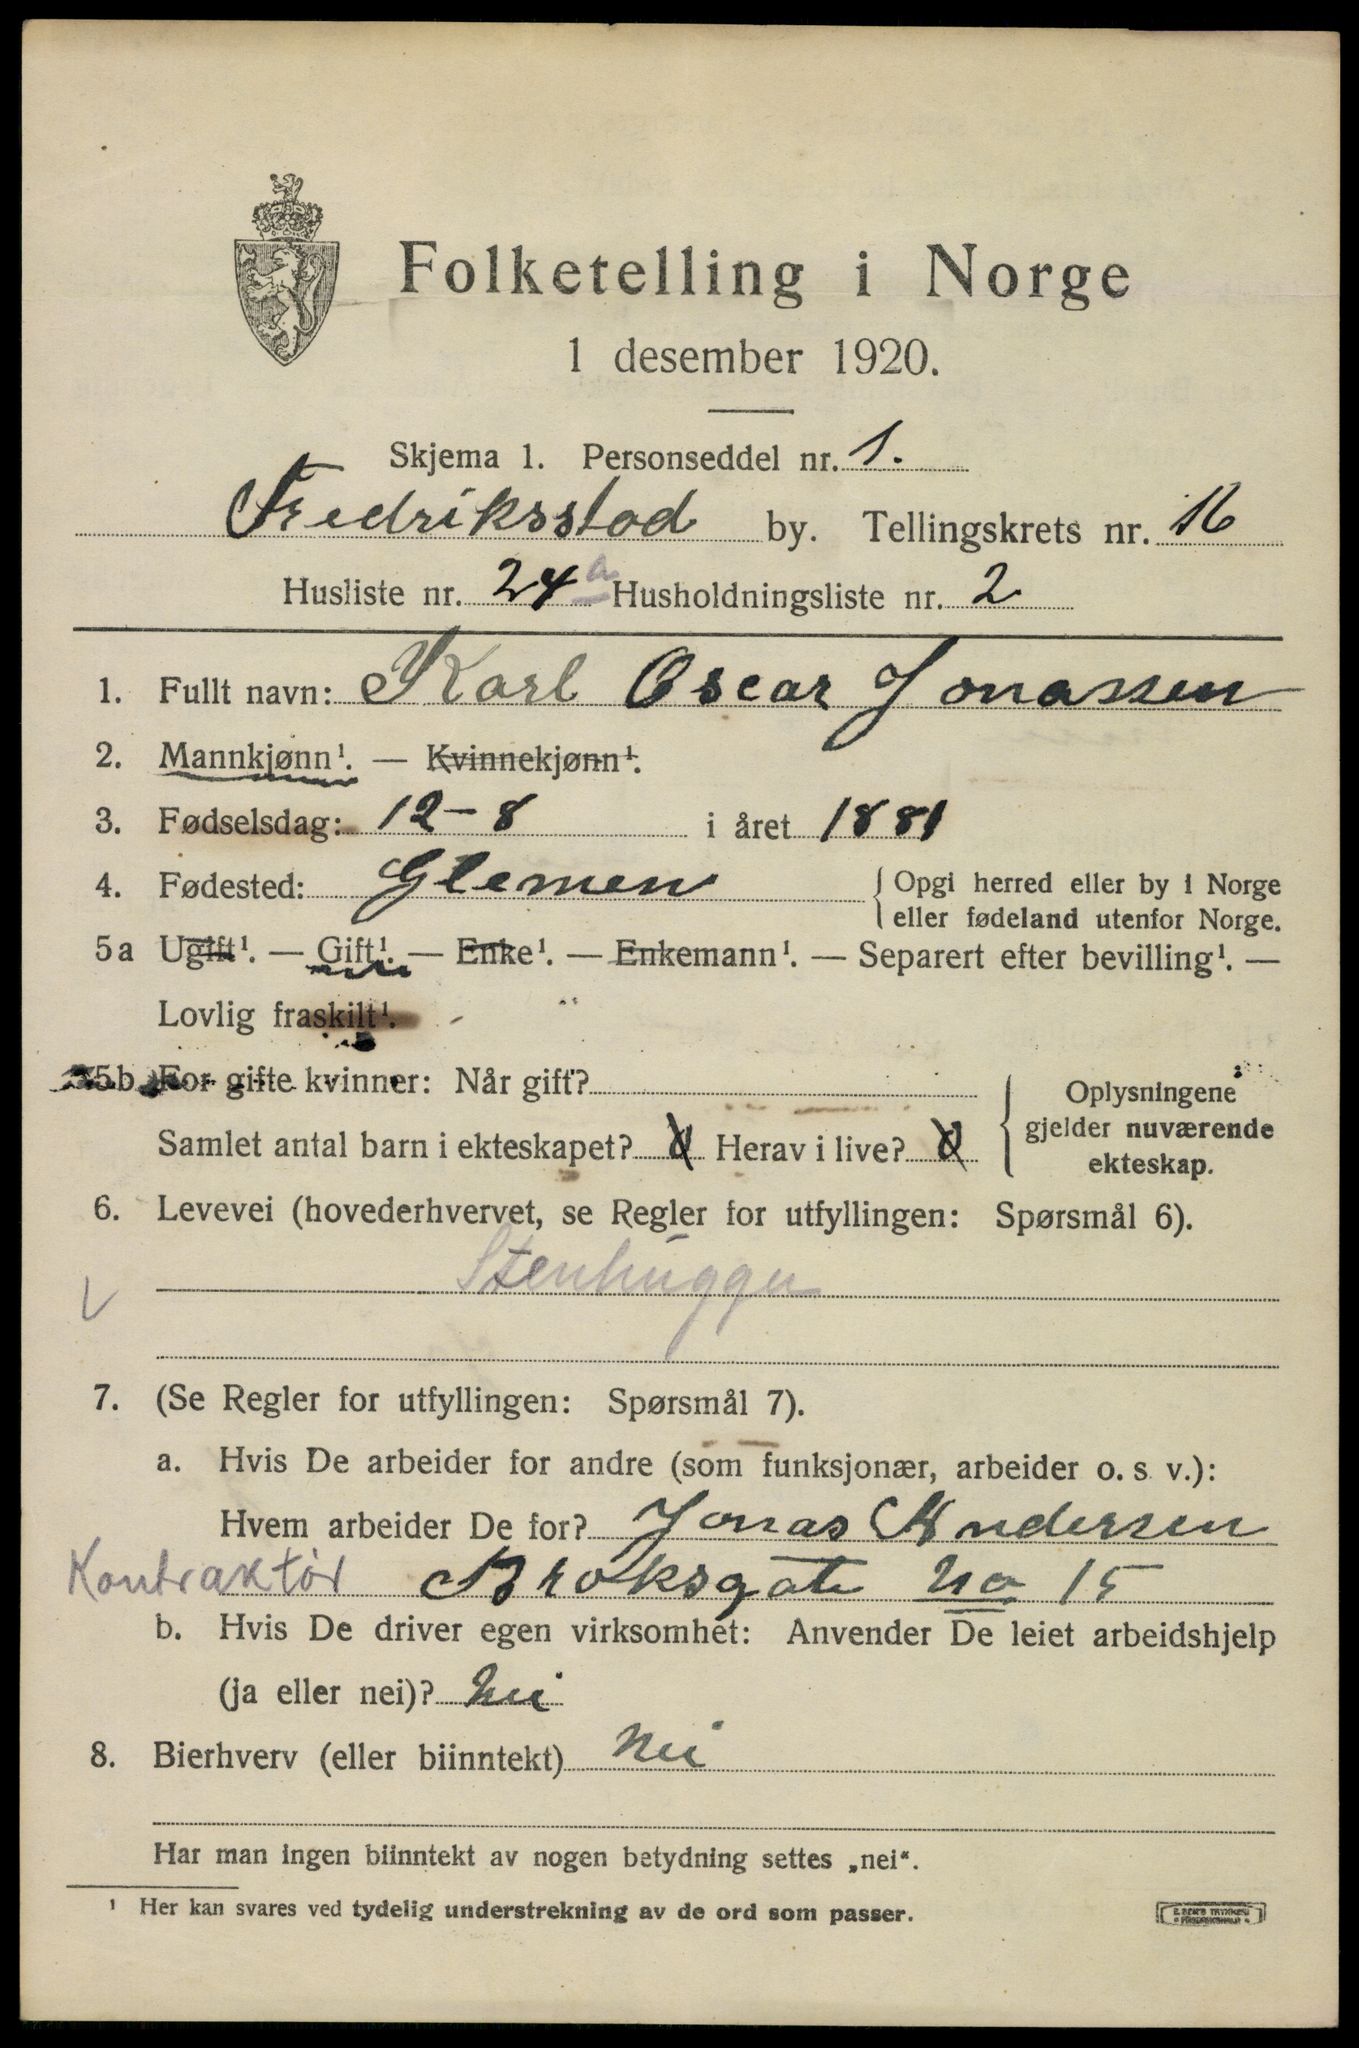 Folketelling i Norge
1 desember 1920.
Skjema 1. Personseddel nr. 1.
Fredriksstad by. Tellingskrets nr. 16
Husliste nr. 24a Husholdningsliste nr. 2
1. Fullt navn: Karl Oscar Jonassen
2. Mannkjønn¹. — Kvinnekjønn¹.
3. Fødselsdag: 12-8 i året 1881
4. Fødested: Glemen { Opgi herred eller by i Norge
eller fødeland utenfor Norge.
5a Ugift¹. — Gift¹. — Enke¹. — Enkemann¹. — Separert efter bevilling¹. —
Lovlig fraskilt¹.
5b For gifte kvinner: Når gift?
Samlet antal barn i ekteskapet? Herav i live?
{ Oplysningene
gjelder nuværende
ekteskap.
6. Levevei (hovederhvervet, se Regler for utfyllingen: Spørsmål 6).
Stenhugger
7. (Se Regler for utfyllingen: Spørsmål 7).
a. Hvis De arbeider for andre (som funksjonær, arbeider o. s v.):
Hvem arbeider De for? Jonas Andersen
Kontraktør Broksgate No 15
b. Hvis De driver egen virksomhet: Anvender De leiet arbeidshjelp
(ja eller nei)? Nei
8. Bierhverv (eller biinntekt) Nei
Har man ingen biinntekt av nogen betydning settes „nei“.
¹ Her kan svares ved tydelig understrekning av de ord som passer.